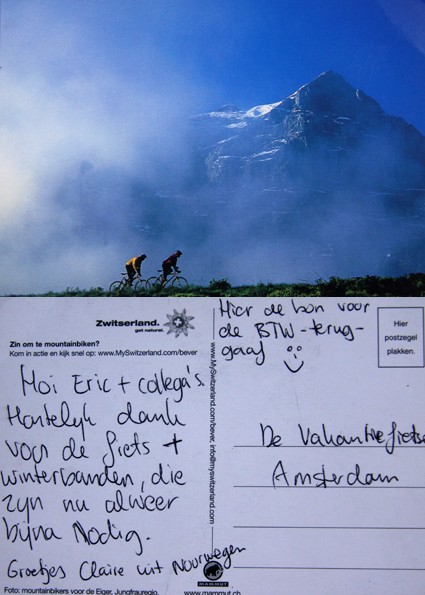 Zwitserland.
get natural.
Zin om te mountainbiken?
Kom in actie en kijk snel op: www.MySwitzerland.com/bever
Hoi Eric + collega's.
Hartelijk dank
voor de fiets +
winterbanden, die
zijn nu alweer
bijna Nodig.
Groetjes Claire uit Noorwegen
Foto: mountainbikers voor de Eiger, Jungfrauregio.
www.MySwitzerland.com/bever, info@myswitzerland.com
Hier de bon voor
de BTW-terug-
gaaf
Hier
postzegel
plakken.
De Vakantiefietser
Amsterdam
MAMMUT
www.mammut.ch